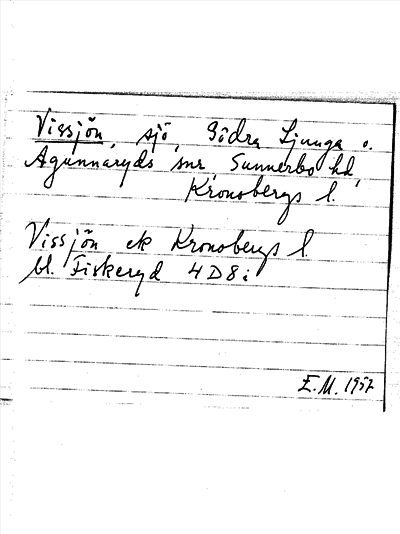 Vissjön, sjö, Södra Ljunga o.
Agunnaryds snr, Sunnerbo hd,
Kronobergs l.
Vissjön ek Kronobergs l.
bl. Fiskeryd 4D8i
E.M. 1957